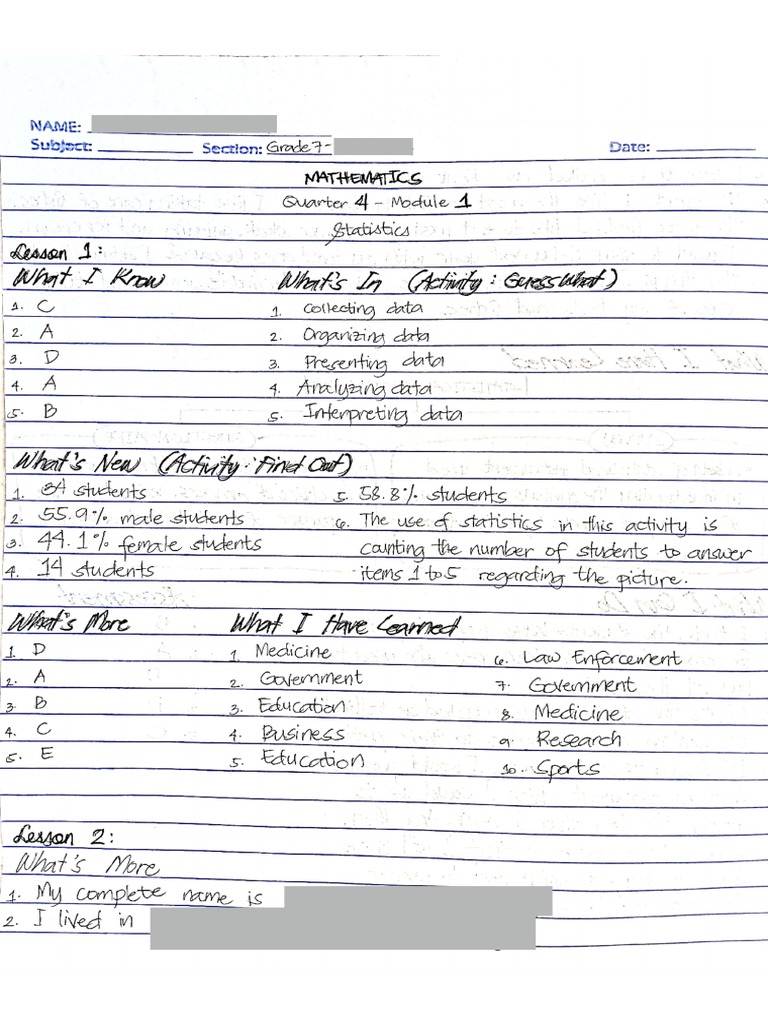 NAME:
Subject: Section: Grade 7- Date:
MATHEMATICS
Quarter 4 - Module 1
Statistics
Lesson 1:
What I Know
1. C
2. A
3. D
4. A
5. B
What's In (Activity: Guess What)
1. Collecting data
2. Organizing data
3. Presenting data
4. Analyzing data
5. Interpreting data
What's New (Activity: Find Out)
1. 34 students
2. 55.9% male students
3. 44.1% female students
4. 14 students
5. 58.8% students
6. The use of statistics in this activity is
counting the number of students to answer
items 1 to 5 regarding the picture.
What's More
1. D
2. A
3. B
4. C
5. E
What I Have Learned
1. Medicine
2. Government
3. Education
4. Business
5. Education
6. Law Enforcement
7. Government
8. Medicine
9. Research
10. Sports
Lesson 2:
What's More
1. My complete name is
2. I lived in